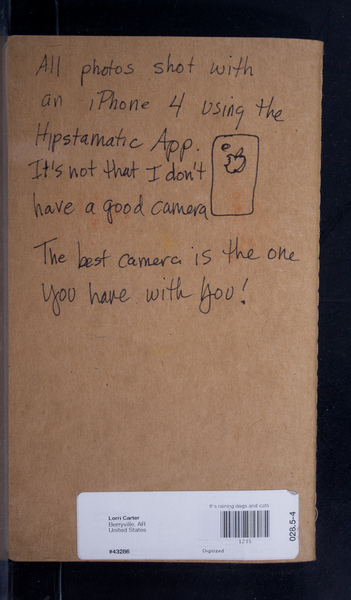 All photos shot with
an iPhone 4 using the
Hipstamatic App.
It's not that I don't
have a good camera
The best camera is the one
you have with you!
It's raining dogs and cats
Lorri Carter
Berryville, AR
United States
1235
#43286
Digitized
028.5-4